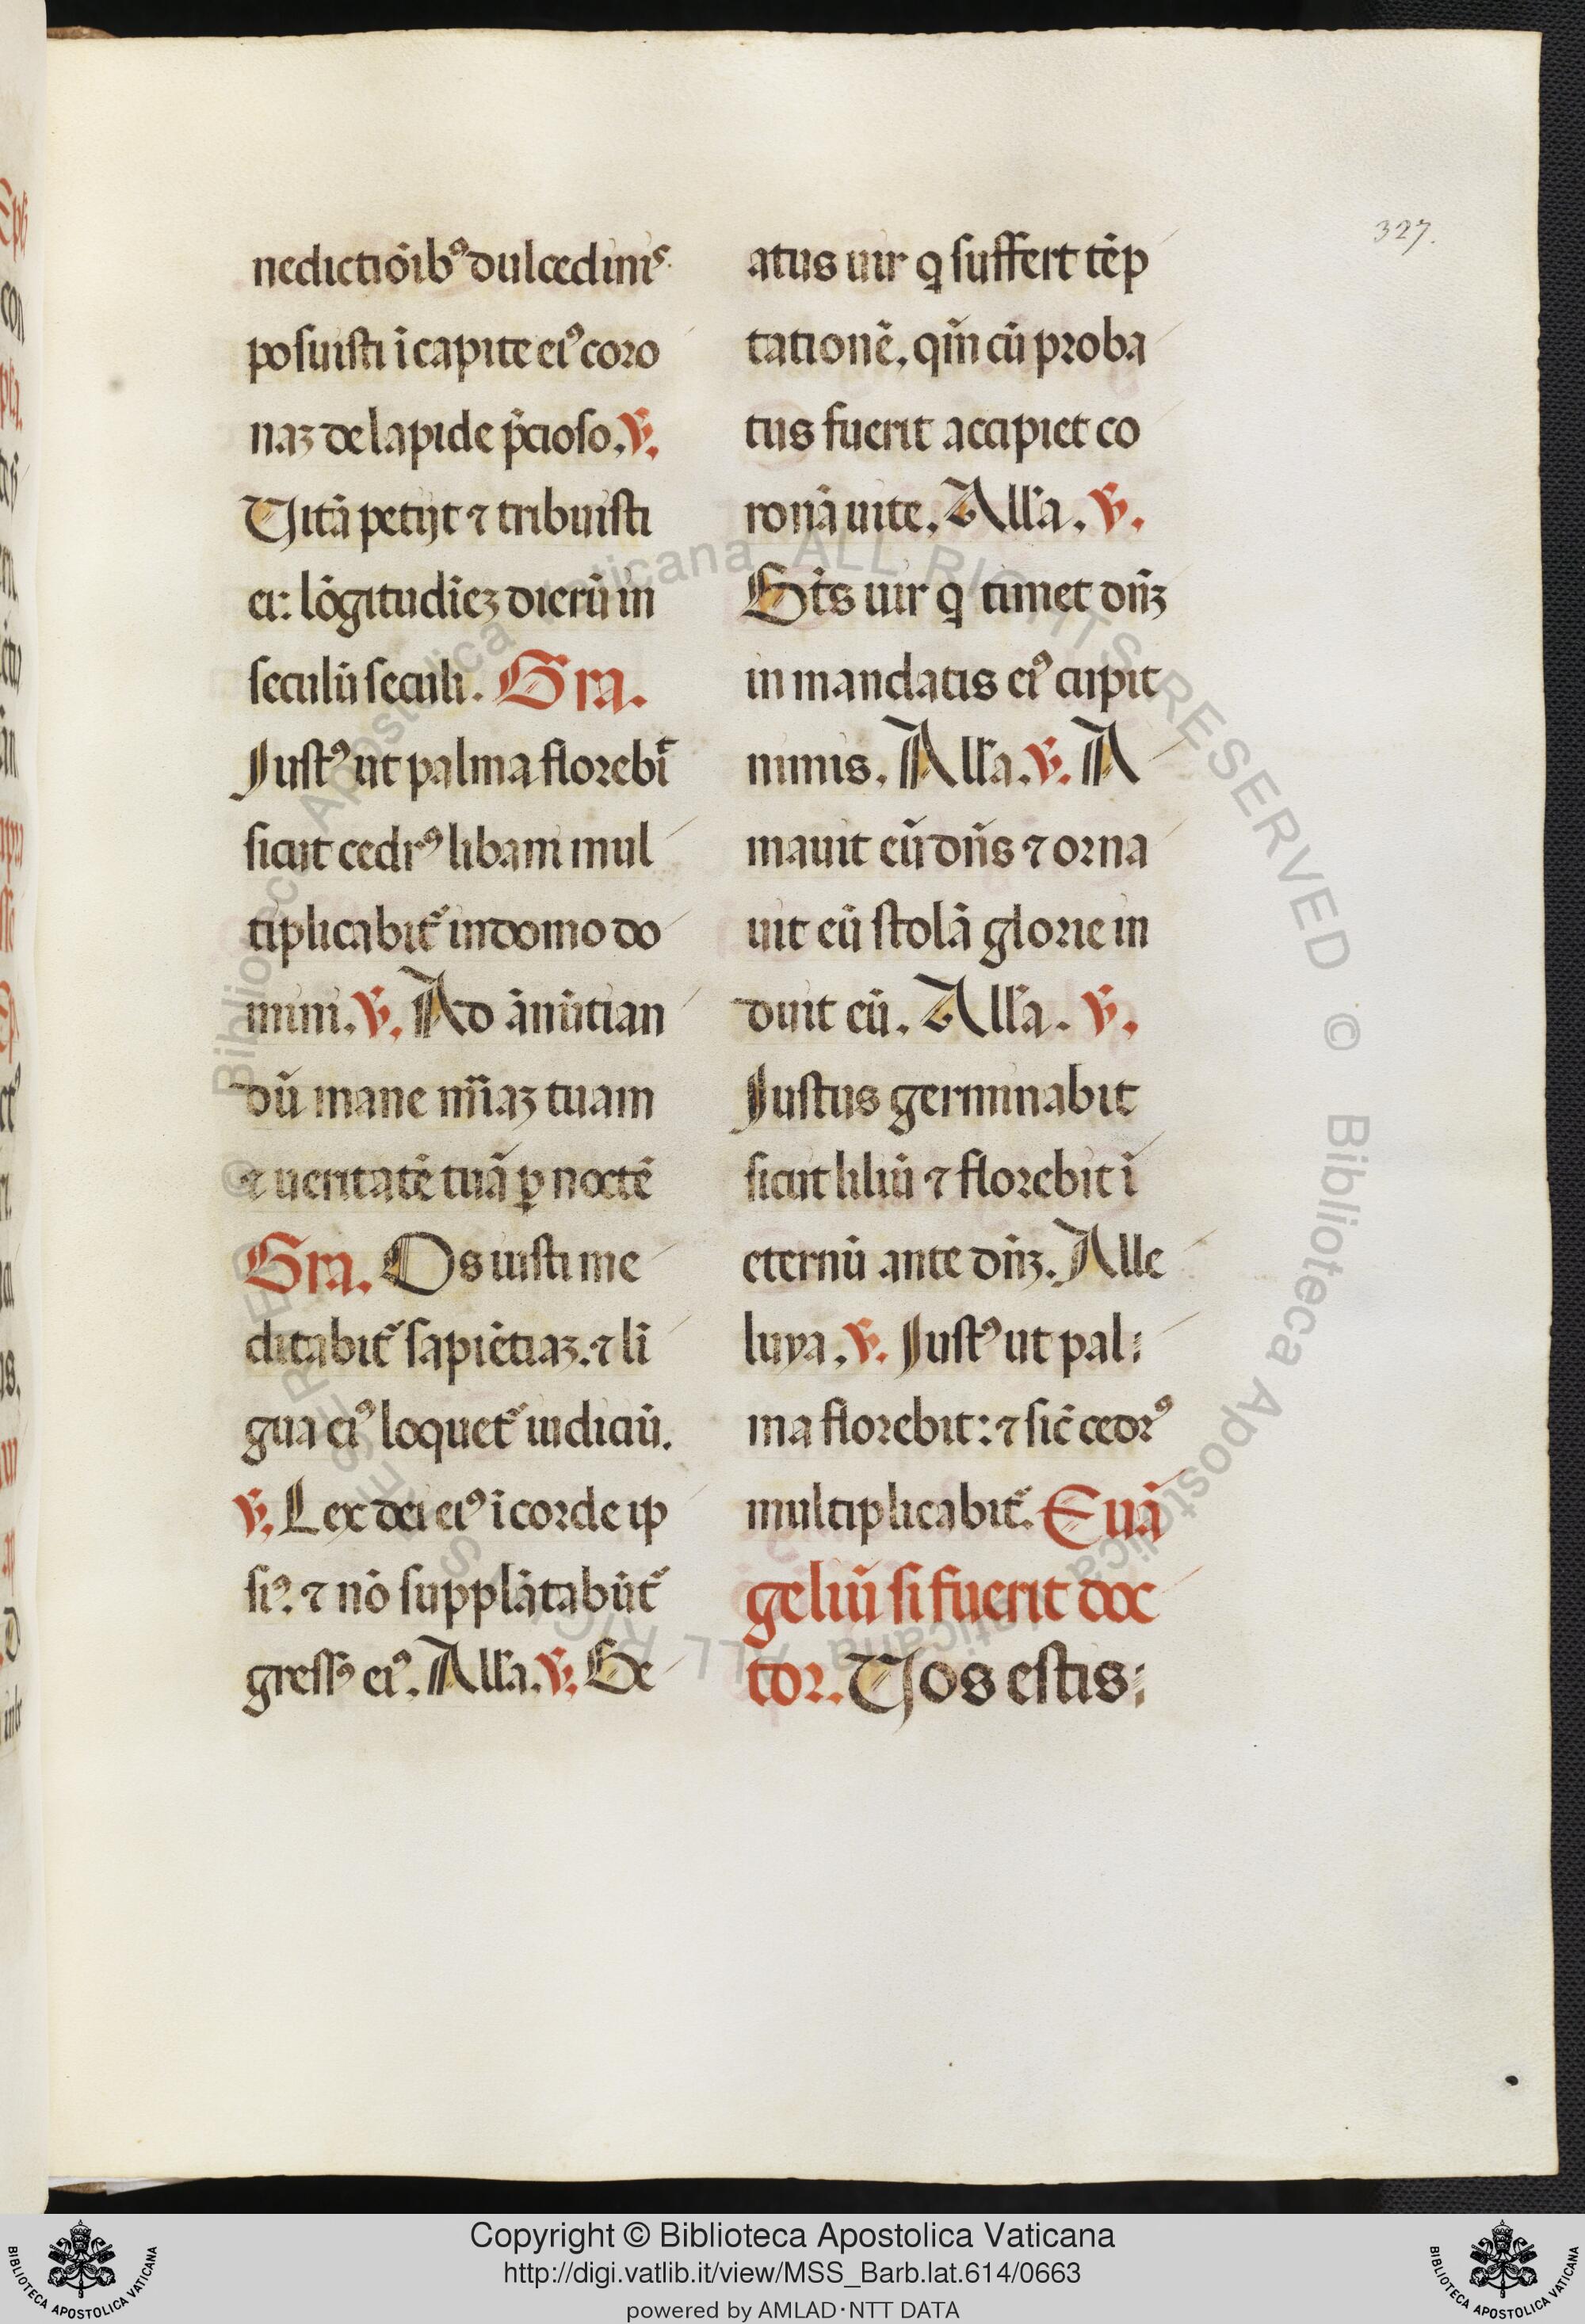 327.
nedictiōibꝰ dulcedinis
posuisti ī capite eiꝰ coro
naz de lapide p̄cioso. ℣.
Uitā petijt ⁊ tribuisti
ei: lōgitudīez dierū in
seculū seculi. Gra.
Iustꝰ ut palma florebit
sicut cedrꝰ libani mul
tiplicabit᷑ in domo do
mini. ℣. Ad ānūtian
dū mane mīaz tuam
⁊ ueritatē tuā ꝑ noctē
Gra. Os iusti me
ditabit᷑ sapiētiaz. ⁊ li
gua eiꝰ loquet᷑ iudiciū.
℣. Lex dei eiꝰ ī corde ip
siꝰ. ⁊ nō supplātabūt᷑
gressꝰ eiꝰ. All'a. ℣. Be
atus uir q suffert tēp
tationē. qm̄ cū proba
tus fuerit accipiet co
ronā uite. All'a. ℣.
Bt̄s uir q timet dn̄z
in mandatis eiꝰ cupit
nimis. All'a. ℣. A
mauit eū dn̄s ⁊ orna
uit eū stolā glorie in
duit eū. All'a. ℣.
Iustus germinabit
sicut liliū ⁊ florebit ī
eternū ante dn̄z. Alle
luya. ℣. Iustꝰ ut pal:
ma florebit: ⁊ sic̄ cedrꝰ
multiplicabit᷑. Euā
geliū si fuerit doc
tor. Uos estis:
Copyright © Biblioteca Apostolica Vaticana
http://digi.vatlib.it/view/MSS_Barb.lat.614/0663
powered by AMLAD·NTT DATA
BIBLIOTECA APOSTOLICA VATICANA
BIBLIOTECA APOSTOLICA VATICANA